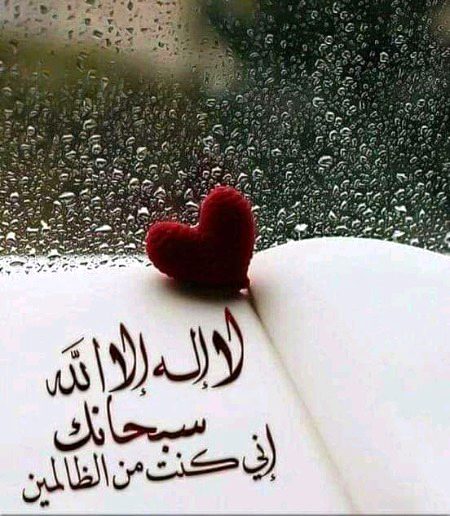 لا إله إلا الله
سبحانك
إني كنت من الظالمين